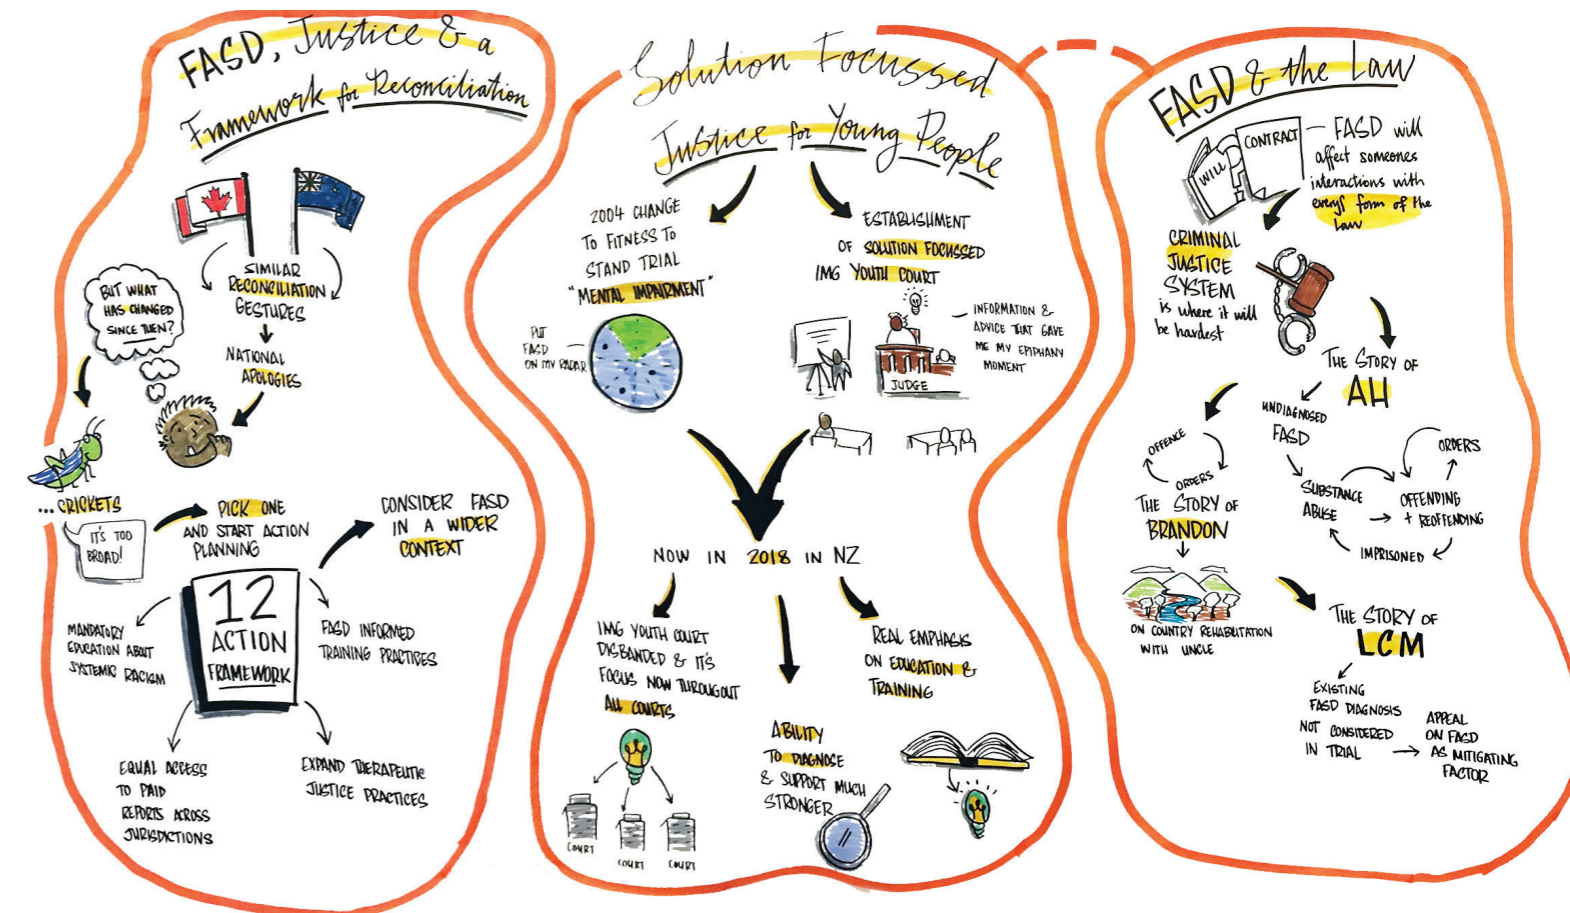 FASD, Justice & a
Framework for Reconciliation
SIMILAR
RECONCILIATION
GESTURES
NATIONAL
APOLOGIES
BUT WHAT
HAS CHANGED
SINCE THEN?
... CRICKETS
IT'S TOO
BROAD!
PICK ONE
AND START ACTION
PLANNING
CONSIDER FASD
IN A WIDER
CONTEXT
12
ACTION
FRAMEWORK
MANDATORY
EDUCATION ABOUT
SYSTEMIC RACISM
FASD INFORMED
TRAINING PRACTICES
EQUAL ACCESS
TO PAID
REPORTS ACROSS
JURISDICTIONS
EXPAND THERAPEUTIC
JUSTICE PRACTICES
Solution Focussed
Justice for Young People
2004 CHANGE
TO FITNESS TO
STAND TRIAL
"MENTAL IMPAIRMENT"
PUT
FASD
ON MY RADAR
ESTABLISHMENT
OF SOLUTION FOCUSSED
IMG YOUTH COURT
JUDGE
INFORMATION &
ADVICE THAT GAVE
ME MY EPIPHANY
MOMENT
NOW IN 2018 IN NZ
IMG YOUTH COURT
DISBANDED & IT'S
FOCUS NOW THROUGOUT
ALL COURTS
COURT
COURT
COURT
ABILITY
TO DIAGNOSE
& SUPPORT MUCH
STRONGER
REAL EMPHASIS
ON EDUCATION &
TRAINING
FASD & the Law
WILL
CONTRACT
FASD will
affect someones
interactions with
every form of the
law
CRIMINAL
JUSTICE
SYSTEM
is where it will
be hardest
THE STORY OF
AH
UNDIAGNOSED
FASD
SUBSTANCE
ABUSE
OFFENDING
+ REOFFENDING
ORDERS
IMPRISONED
OFFENCE
ORDERS
THE STORY OF
BRANDON
ON COUNTRY REHABILITATION
WITH UNCLE
THE STORY OF
LCM
EXISTING
FASD DIAGNOSIS
NOT CONSIDERED
IN TRIAL
APPEAL
ON FASD
AS MITIGATING
FACTOR